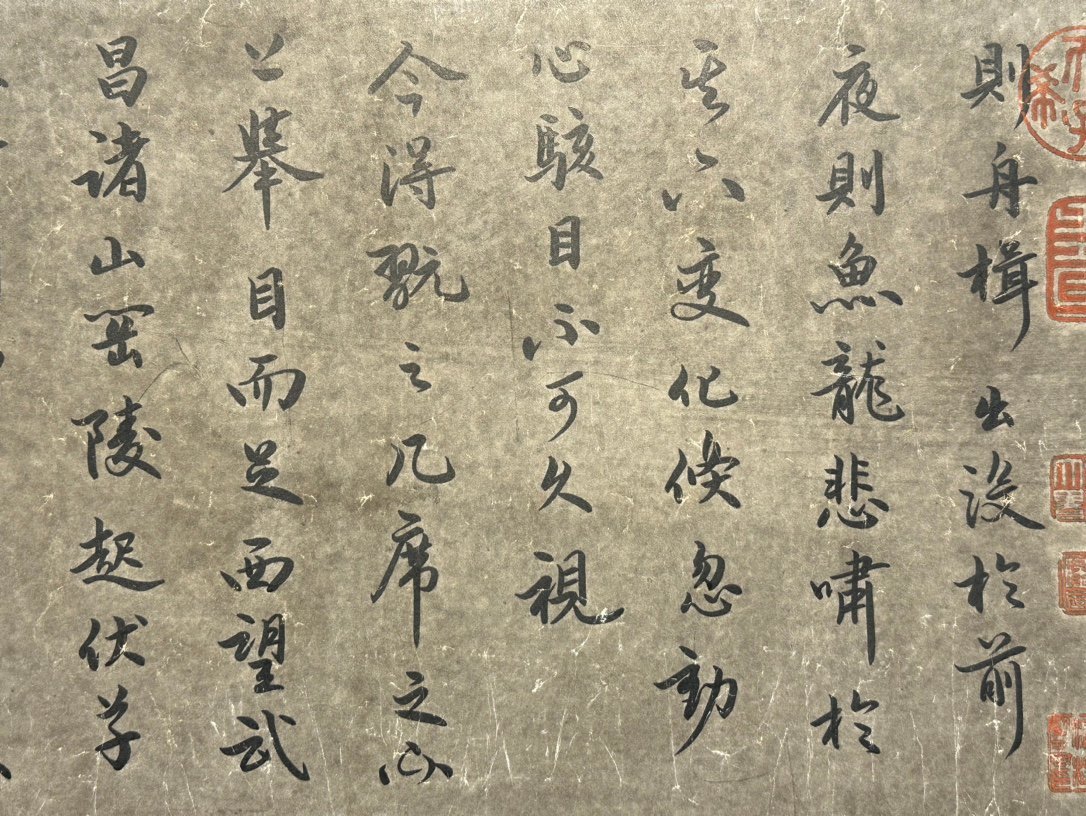 則舟楫出没於前
夜則魚龍悲嘯於
其下变化倏忽動
心駭目不可久視
今得翫之几席之
上舉目而足西望武
昌諸山岡陵起伏草